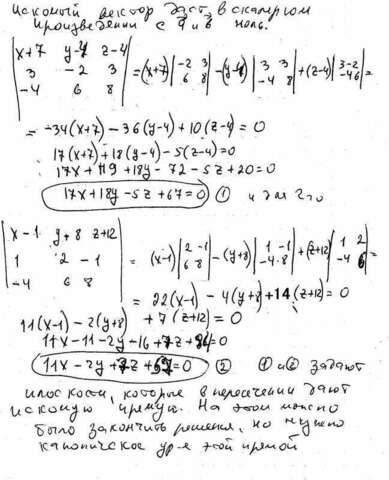 Искомый вектор даст в скалярном
произведении с q и в ноль.
|x+7 y-4 z-4|
|3 -2 3| = (x+7)|-2 3| - (y-4)|3 3| + (z-4)|3 -2| =
|-4 6 8| |6 8| |-4 8| |-4 6|
= -34(x+7) - 36(y-4) + 10(z-4) = 0
17(x+7) + 18(y-4) - 5(z-4) = 0
17x + 119 + 18y - 72 - 5z + 20 = 0
17x + 18y - 5z + 67 = 0 ① и для 2го
|x-1 y+8 z+12|
|1 2 -1| = (x-1)|2 -1| - (y+8)|1 -1| + (z+12)|1 2| =
|-4 6 8| |6 8| |-4 8| |-4 6|
= 22(x-1) - 4(y+8) + 14(z+12) = 0
11(x-1) - 2(y+8) + 7(z+12) = 0
11x - 11 - 2y - 16 + 7z + 84 = 0
11x - 2y + 7z + 57 = 0 ② ① и ② задают
плоскости, которые в пересечении дают
искомую прямую. На этом можно
было закончить решение, но нужно
каноническое ур-е этой прямой